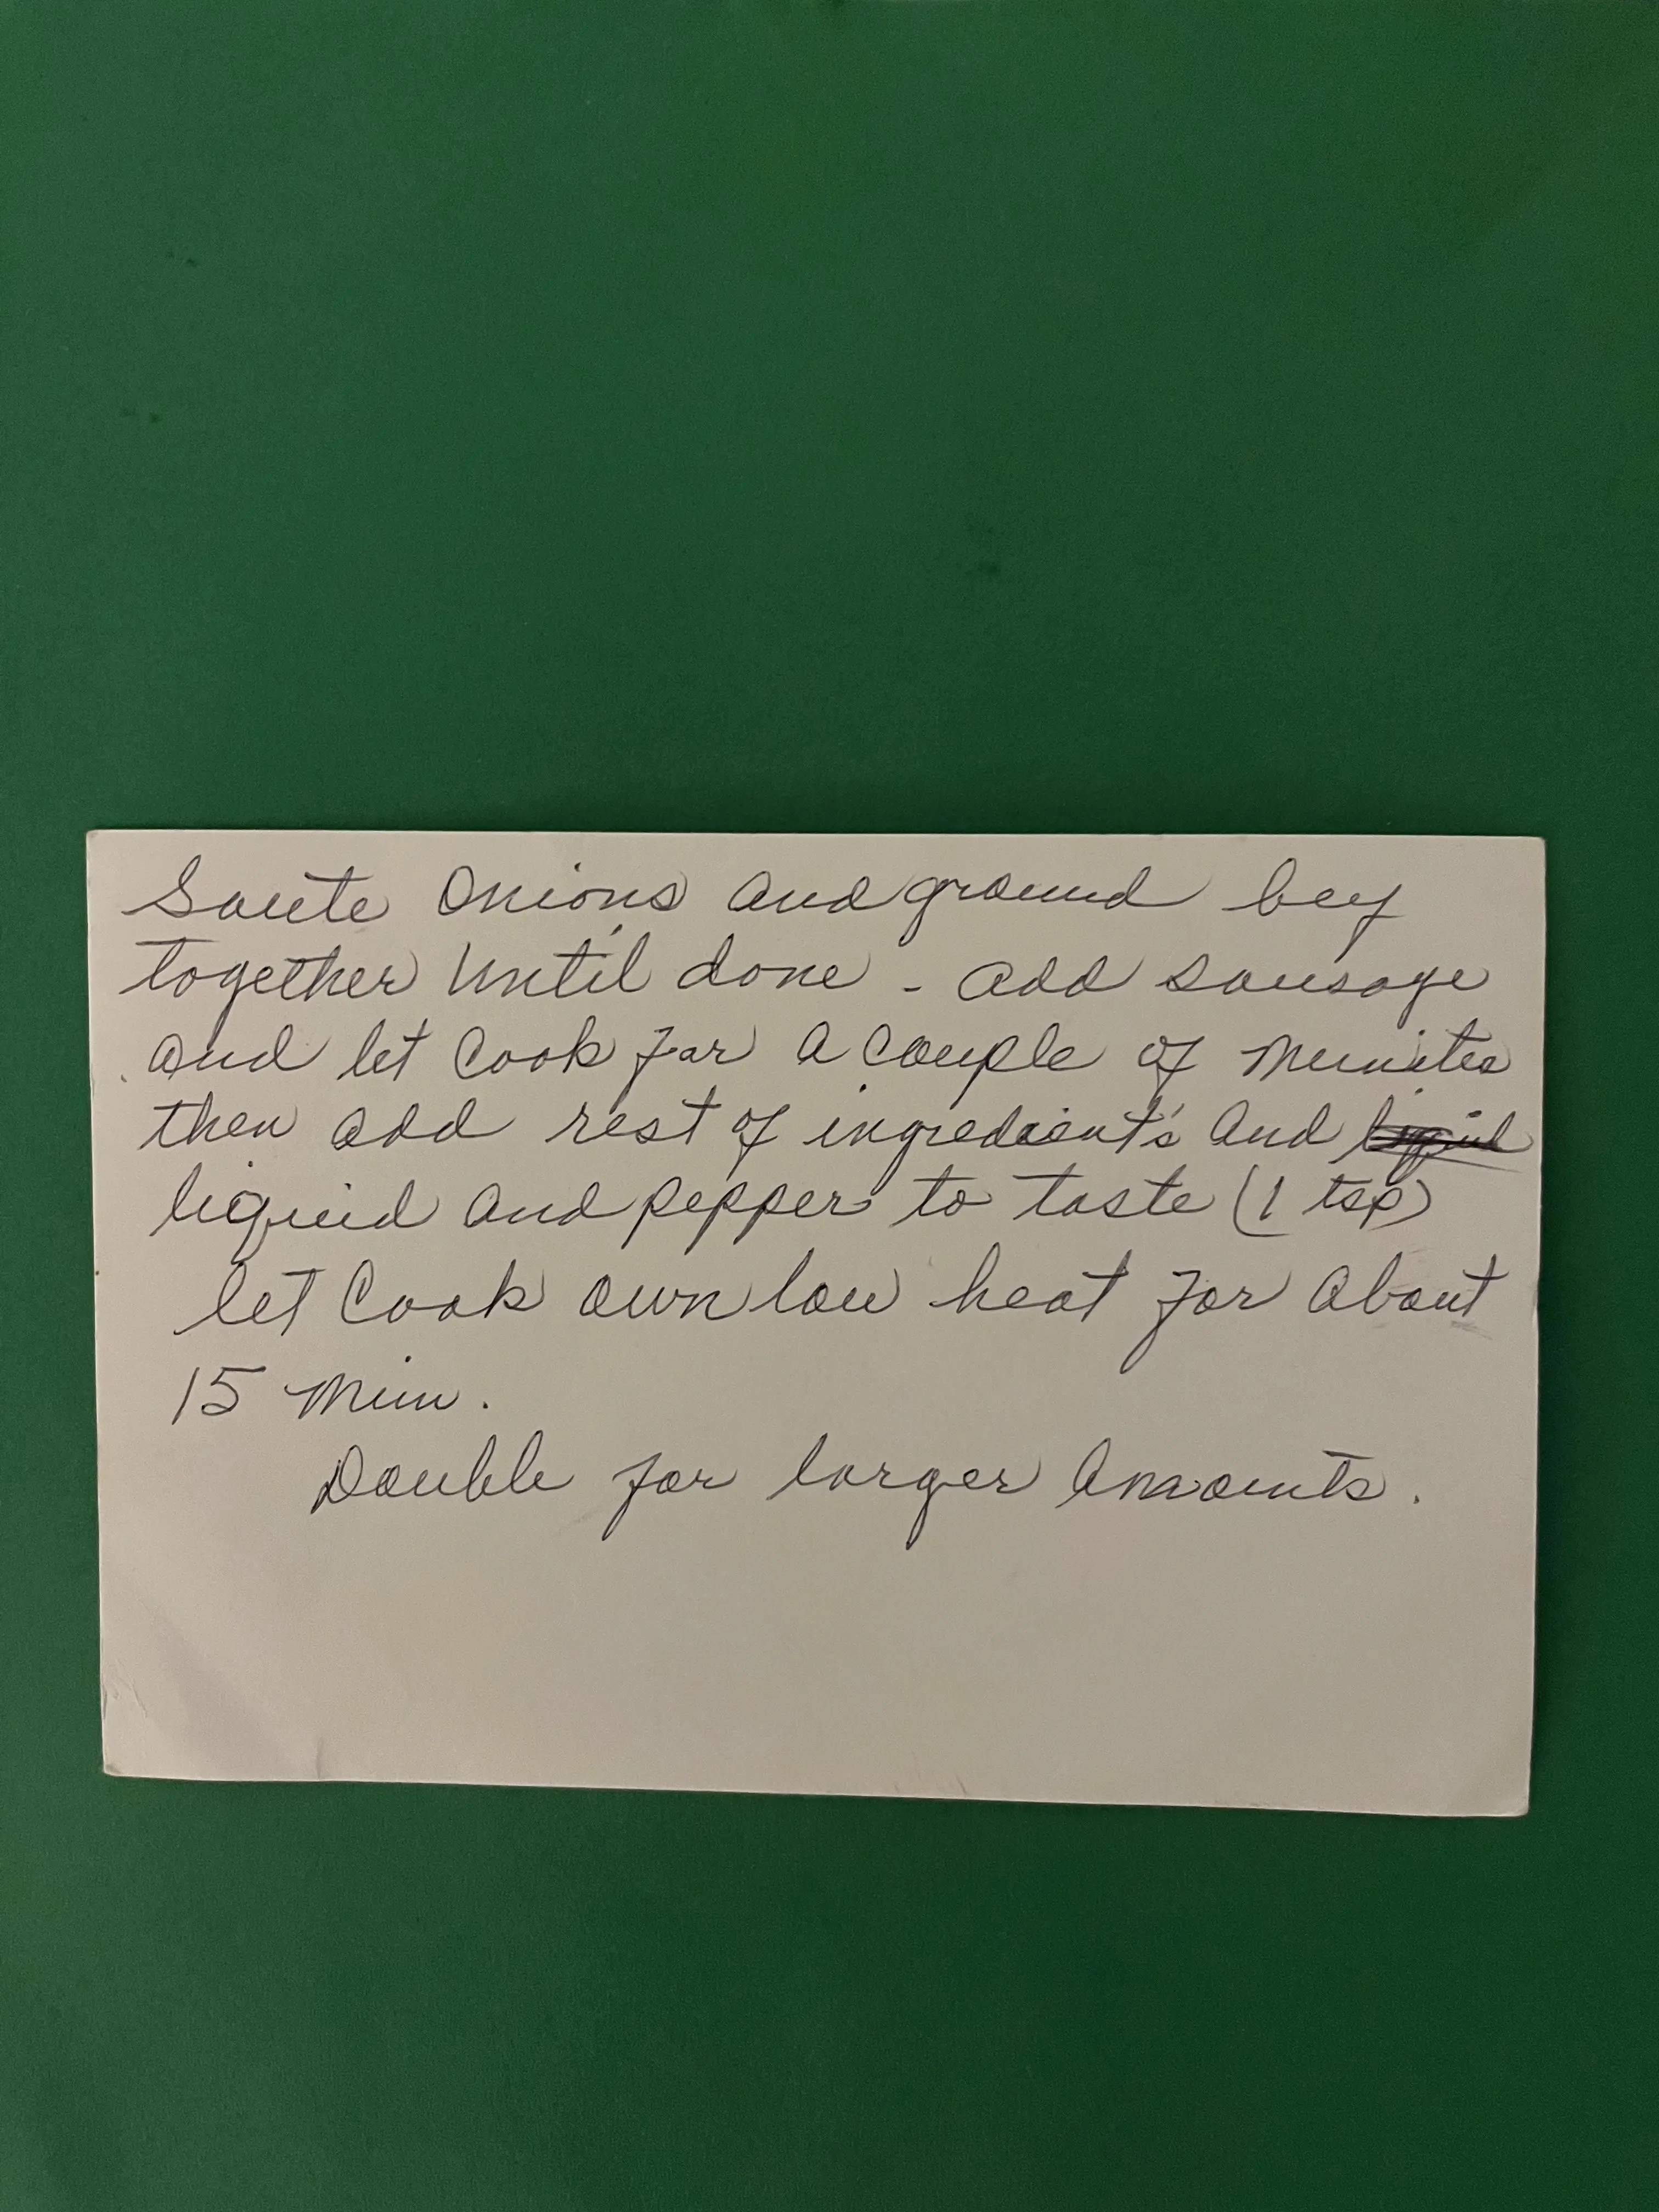 Saute Onions and ground beef
together until done - add sausage
and let Cook for a couple of Minutes
then add rest of ingredient's and liquid
liquid and pepper to taste (1 tsp)
let Cook own low heat for about
15 Min.
Double for larger Amounts.